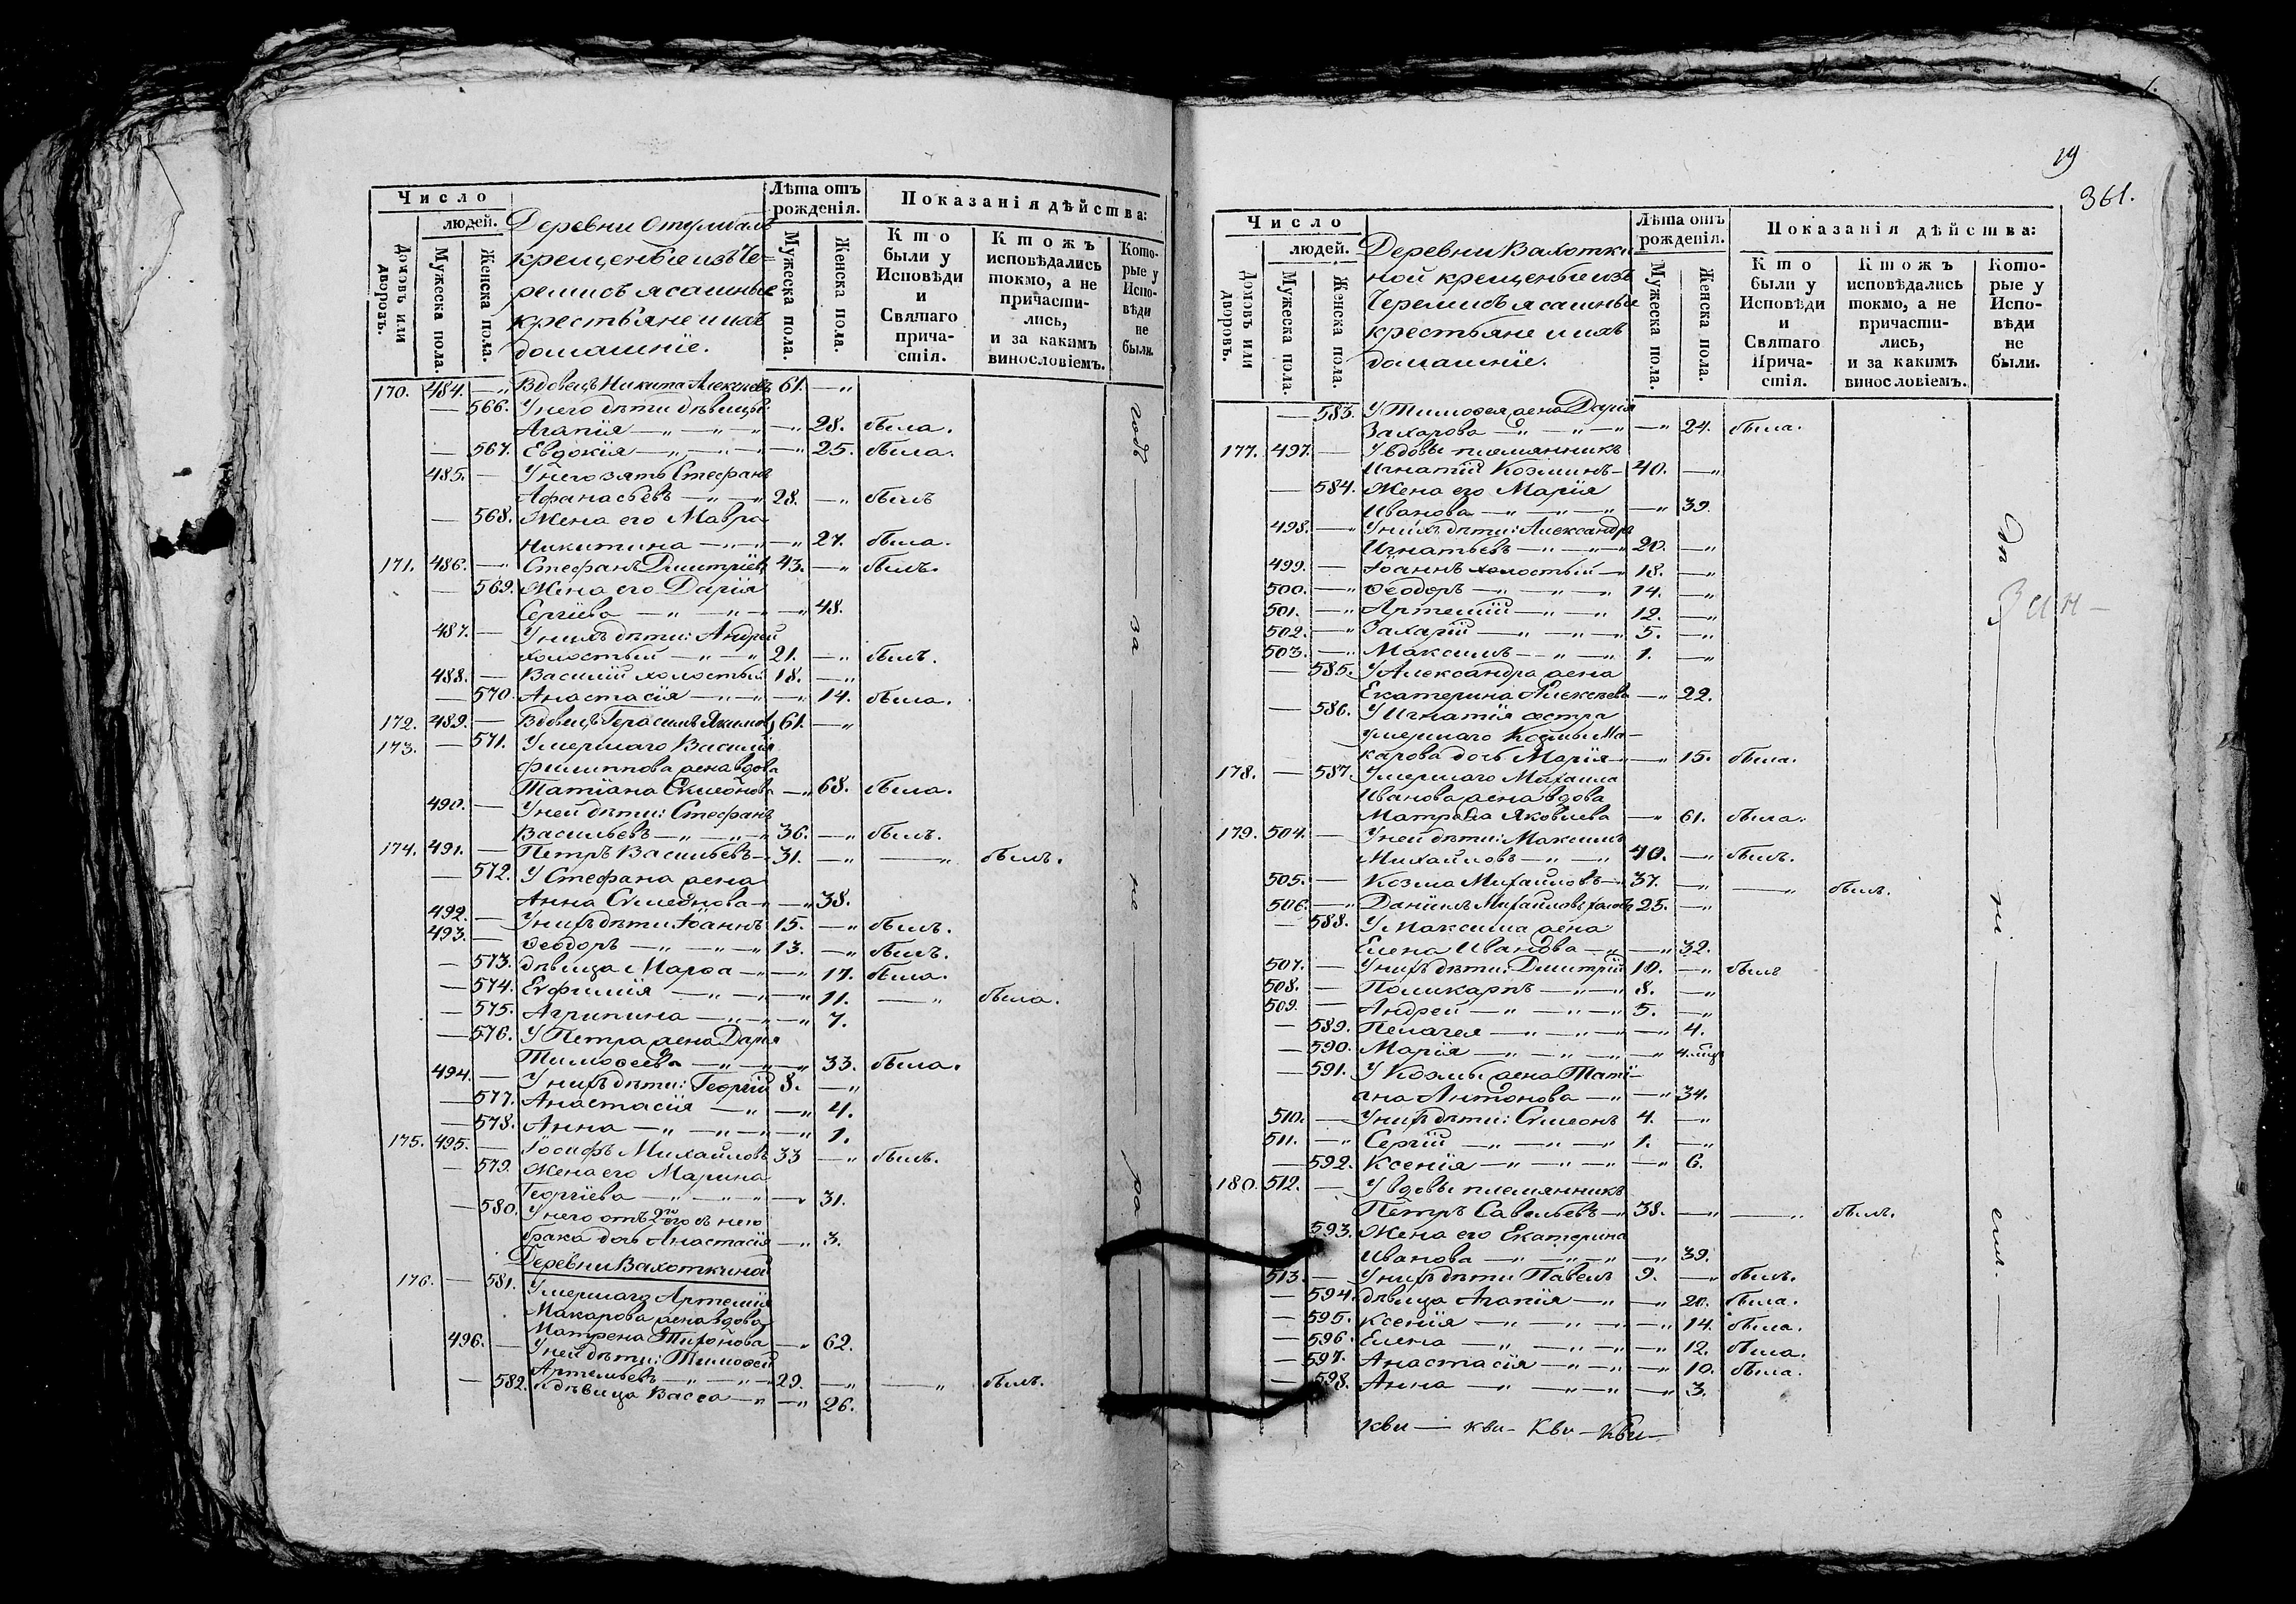 Число
людей.
Домовъ или дворовъ.
Мужеска пола.
Женска пола.
Деревни
крещеные изъ Че-
ремисъ ясашные
крестьяне и ихъ
домашніе.
Лѣта отъ
рожденія.
Мужеска пола.
Женска пола.
Показанія дѣйства:
Кто
были у
Исповѣди
и
Святаго
прича-
стія.
Ктожъ
исповѣдались
токмо, а не
причасти-
лись,
и за какимъ
винословіемъ.
Кото-
рые у
Испо-
вѣди
не
были.
170. 484. — Вдовецъ Никита Алексѣевъ 61. —
— 566. У него дѣти дѣвицы:
Агапія — 28. была.
— 567. Евдокія — 25. была.
485. — У него зять Стефанъ
Афанасьевъ — 28. — былъ
— 568. Жена его Мавра
Никитина — 27. была.
171. 486. — Стефанъ Димитріевъ 43. — былъ.
— 569. Жена его Дарія
Сергіева — 48.
487. — У нихъ дѣти: Андрей
холостый — 21. — былъ.
488. — Василій холостый 18. —
— 570. Анастасія — 14. была.
172. 489. — Вдовецъ Герасимъ Якимовъ 61. —
173. — 571. Умершаго Василія
Филиппова жена вдова
Татіана Симеонова — 68. была.
490. — У ней дѣти: Стефанъ
Васильевъ — 36. — былъ.
174. 491. — Петръ Васильевъ — 31. — — былъ.
— 572. У Стефана жена
Анна Симеонова — 38.
492. — У нихъ дѣти Іоаннъ 15. — былъ.
493. — Ѳеодоръ — 13. — былъ.
— 573. дѣвица Марѳа — 17. была.
— 574. Евфимія — 11. — была.
— 575. Агрипина — 7.
— 576. У Петра жена Дарія
Тимоѳеева — 33. была.
494. — У нихъ дѣти: Георгій 8. —
— 577. Анастасія — 4.
— 578. Анна — 1.
175. 495. — Іосифъ Михайловъ 33 — былъ.
— 579. Жена его Марина
Георгіева — 31.
— 580. У него отъ 2го съ нею
брака дочь Анастасія — 3.
Деревни Вахоткиной
176. — 581. Умершаго Артемія
Макарова жена вдова
Матрена Тихонова — 62.
496. — У ней дѣти: Тимоѳей
Артемьевъ — 29. — — былъ.
— 582. и дѣвица Васса — 26.
годъ — за — не — ра —
19
361.
Число
людей.
Домовъ или дворовъ.
Мужеска пола.
Женска пола.
Деревни Вахотки
ной крещеные изъ
Черемисъ ясашные
крестьяне и ихъ
домашніе.
Лѣта отъ
рожденія.
Мужеска пола.
Женска пола.
Показанія дѣйства:
Кто
были у
Исповѣди
и
Святаго
Прича-
стія.
Ктожъ
исповѣдались
токмо, а не
причасти-
лись,
и за какимъ
винословіемъ.
Кото-
рые у
Испо-
вѣди
не
были.
— 583. У Тимоѳея жена Дарія
Захарова — 24. была.
177. 497. — У вдовы племянникъ
Игнатій Козминъ — 40. —
— 584. Жена его Марія
Иванова — 39.
498. — У нихъ дѣти: Александръ
Игнатьевъ — 20. —
499. — Іоаннъ холостый — 18. —
500. — Ѳеодоръ — 14. —
501. — Артемій — 12. —
502. — Захарій — 5. —
503. — Максимъ — 1. —
— 585. У Александра жена
Екатерина Алексѣева — 22.
— 586. У Игнатія сестра
умершаго Козмы Ма-
карова дочь Марія — 15. была.
178. — 587. Умершаго Михаила
Иванова жена вдова
Матрона Яковлева — 61. была.
179. 504. — У ней дѣти: Максимъ
Михайловъ — 40. — былъ.
505. — Козма Михайловъ — 37. — — былъ.
506. — Даніилъ Михайловъ холост 25. —
— 588. У Максима жена
Елена Иванова — 32.
507. — У нихъ дѣти: Димитрій 10. — былъ
508. — Поликарпъ — 8. —
509. — Андрей — 5. —
— 589. Пелагея — 4.
— 590. Марія —
— 591. У Козмы жена Таті-
ана Антонова — 34.
510. — У нихъ дѣти: Симеонъ 4. —
511. — Сергій — 1. —
— 592. Ксенія — 6.
180. 512. — У вдовы племянникъ
Петръ Савельевъ — 38. — — былъ.
593. Жена его Екатерина
Иванова — 39.
513. — У нихъ дѣти Павелъ 9. — былъ.
— 594. дѣвица Агапія — 20. была.
— 595. Ксенія — 14. была.
— 596. Елена — 12. была.
— 597. Анастасія — 10. была.
— 598. Анна — 3.